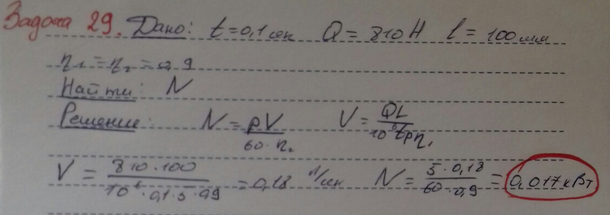 Задача 29. Дано: t=0,1 сек Q=810Н l=100мм
η₁=η₂=0,9
Найти: N
Решение: N = pV / 60·η₂ V = QL / 10⁶tpη₁
V = 810·100 / 10⁶·0,1·5·0,9 = 0,18 л/сек N = 5·0,18 / 60·0,9 = 0,017 кВт